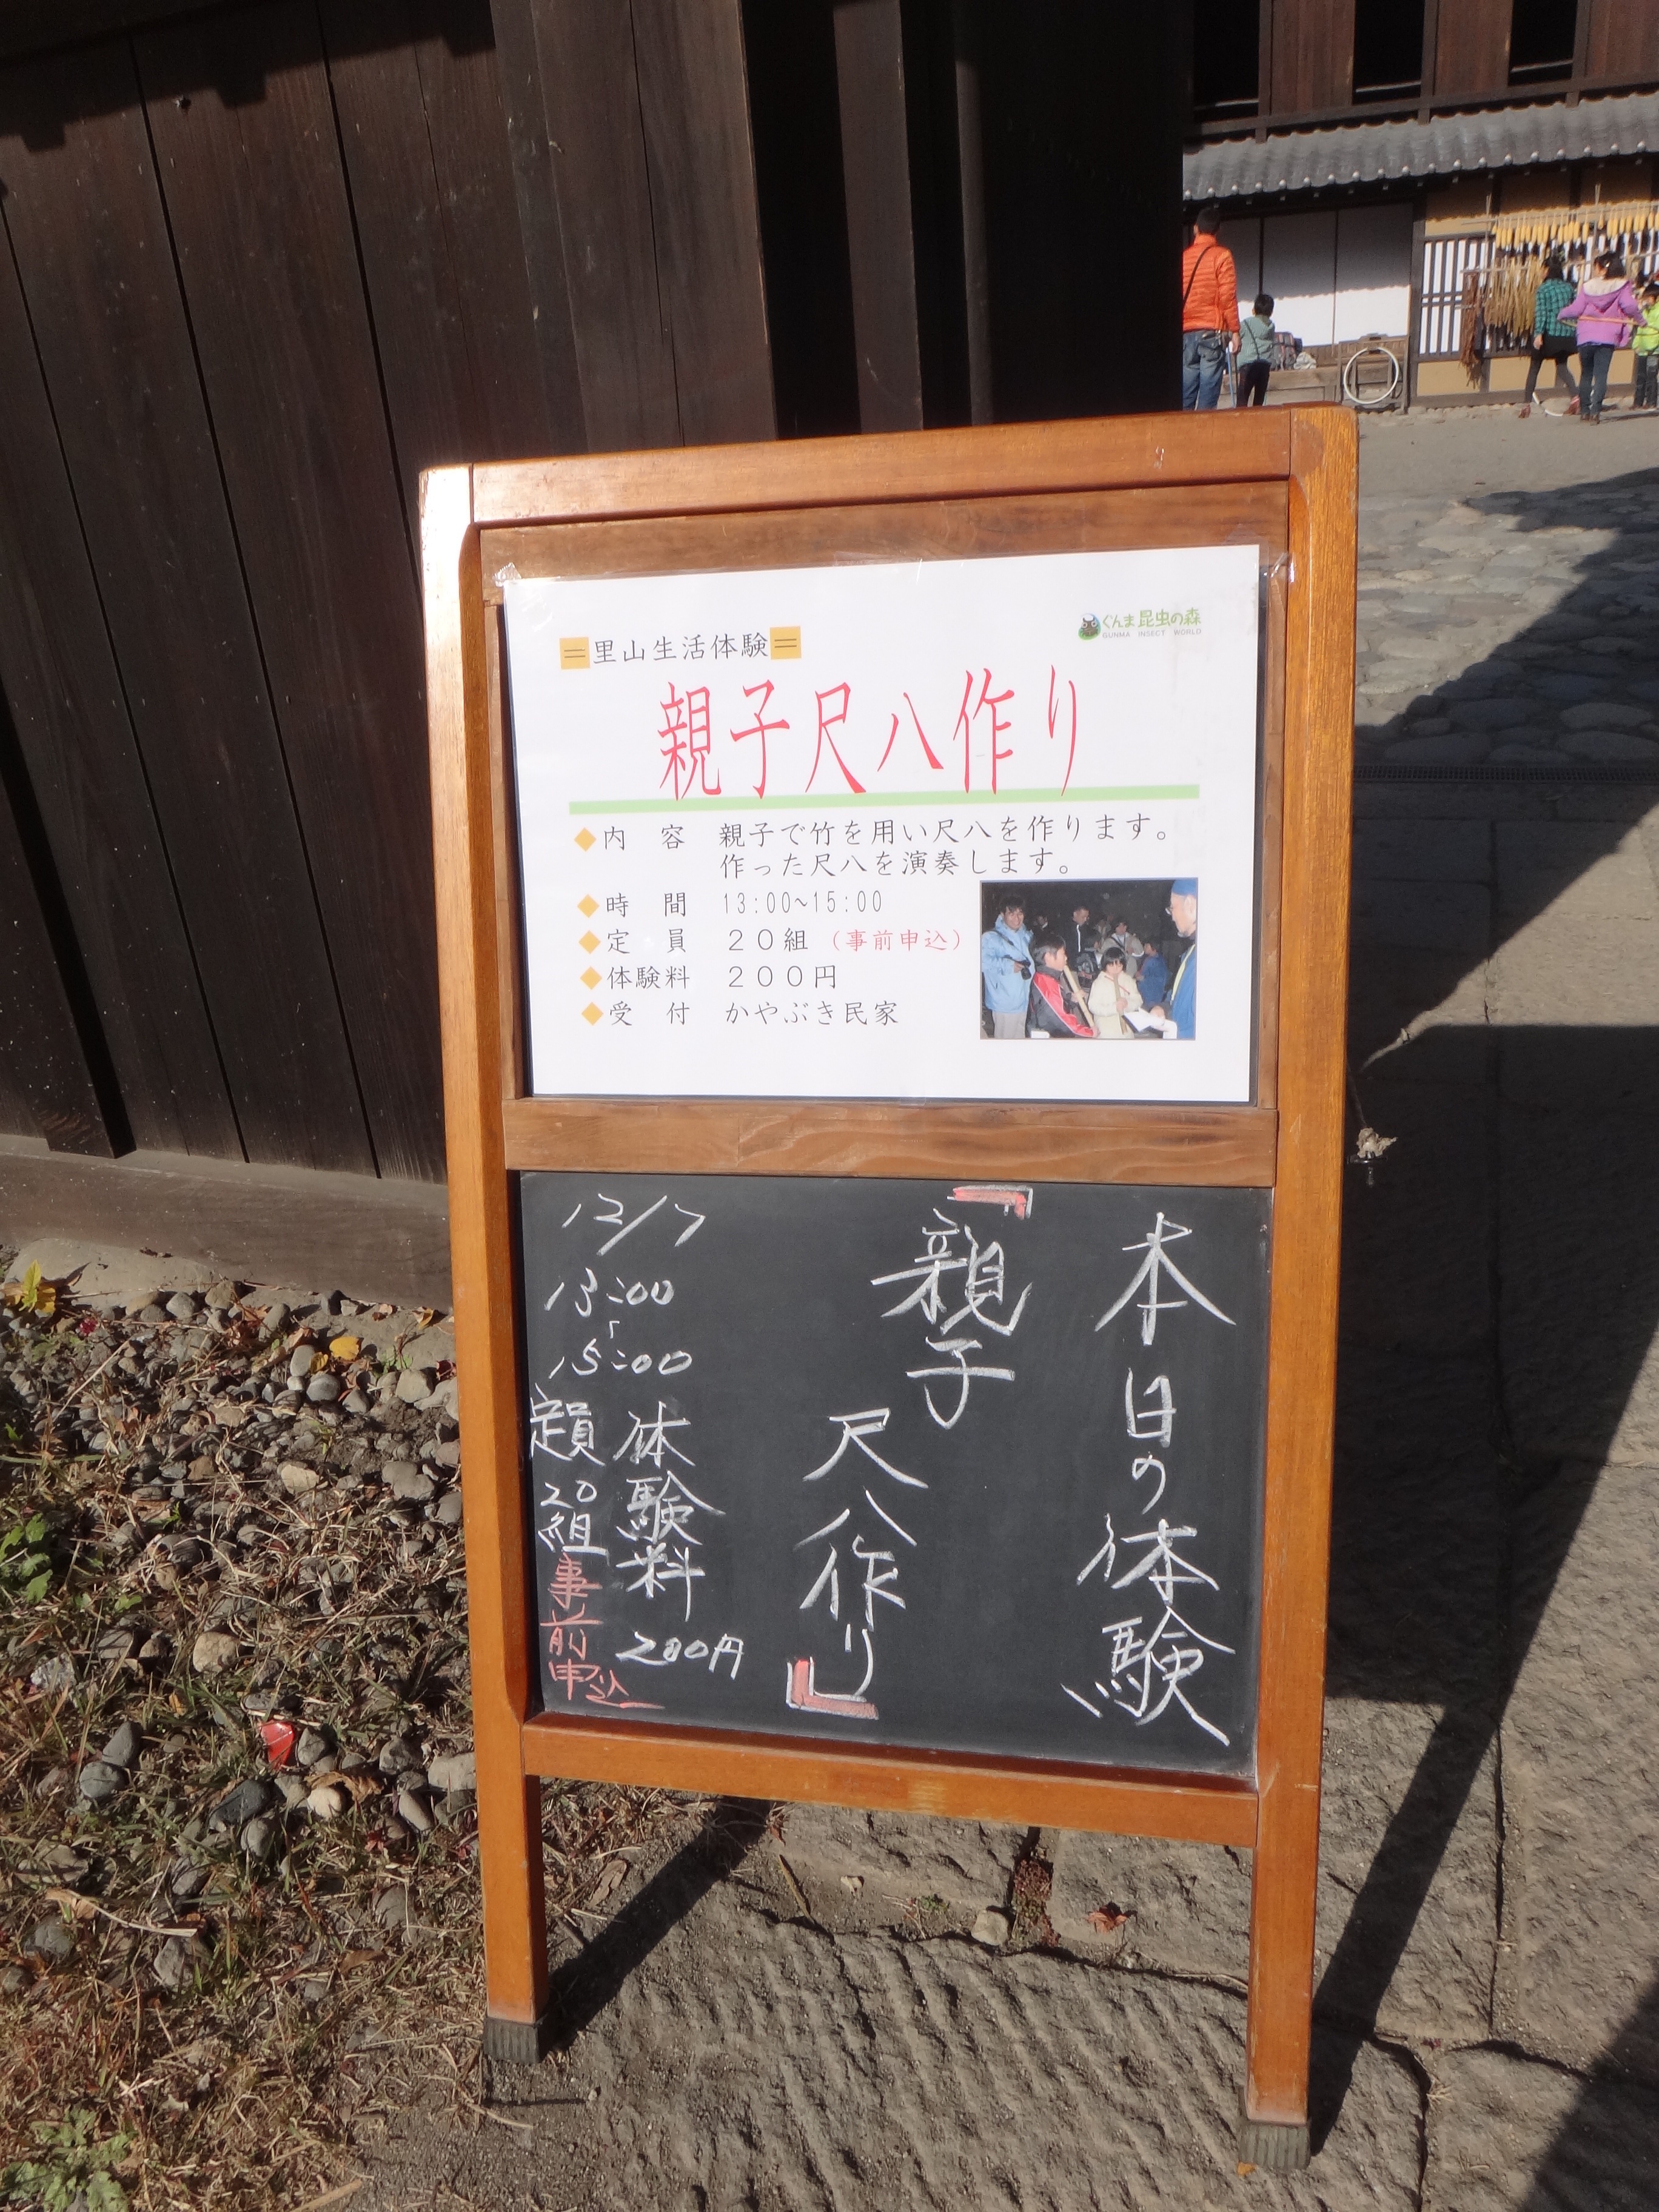 ＝里山生活体験＝
ぐんま昆虫の森
GUNMA INSECT WORLD
親子尺八作り
◆内　容　親子で竹を用い尺八を作ります。
作った尺八を演奏します。
◆時　間　13:00~15:00
◆定　員　２０組（事前申込）
◆体験料　２００円
◆受　付　かやぶき民家
本日の体験
『親子
尺八作り』
12/7
13:00
〜
15:00
体験料 200円
定員 20組 事前申込